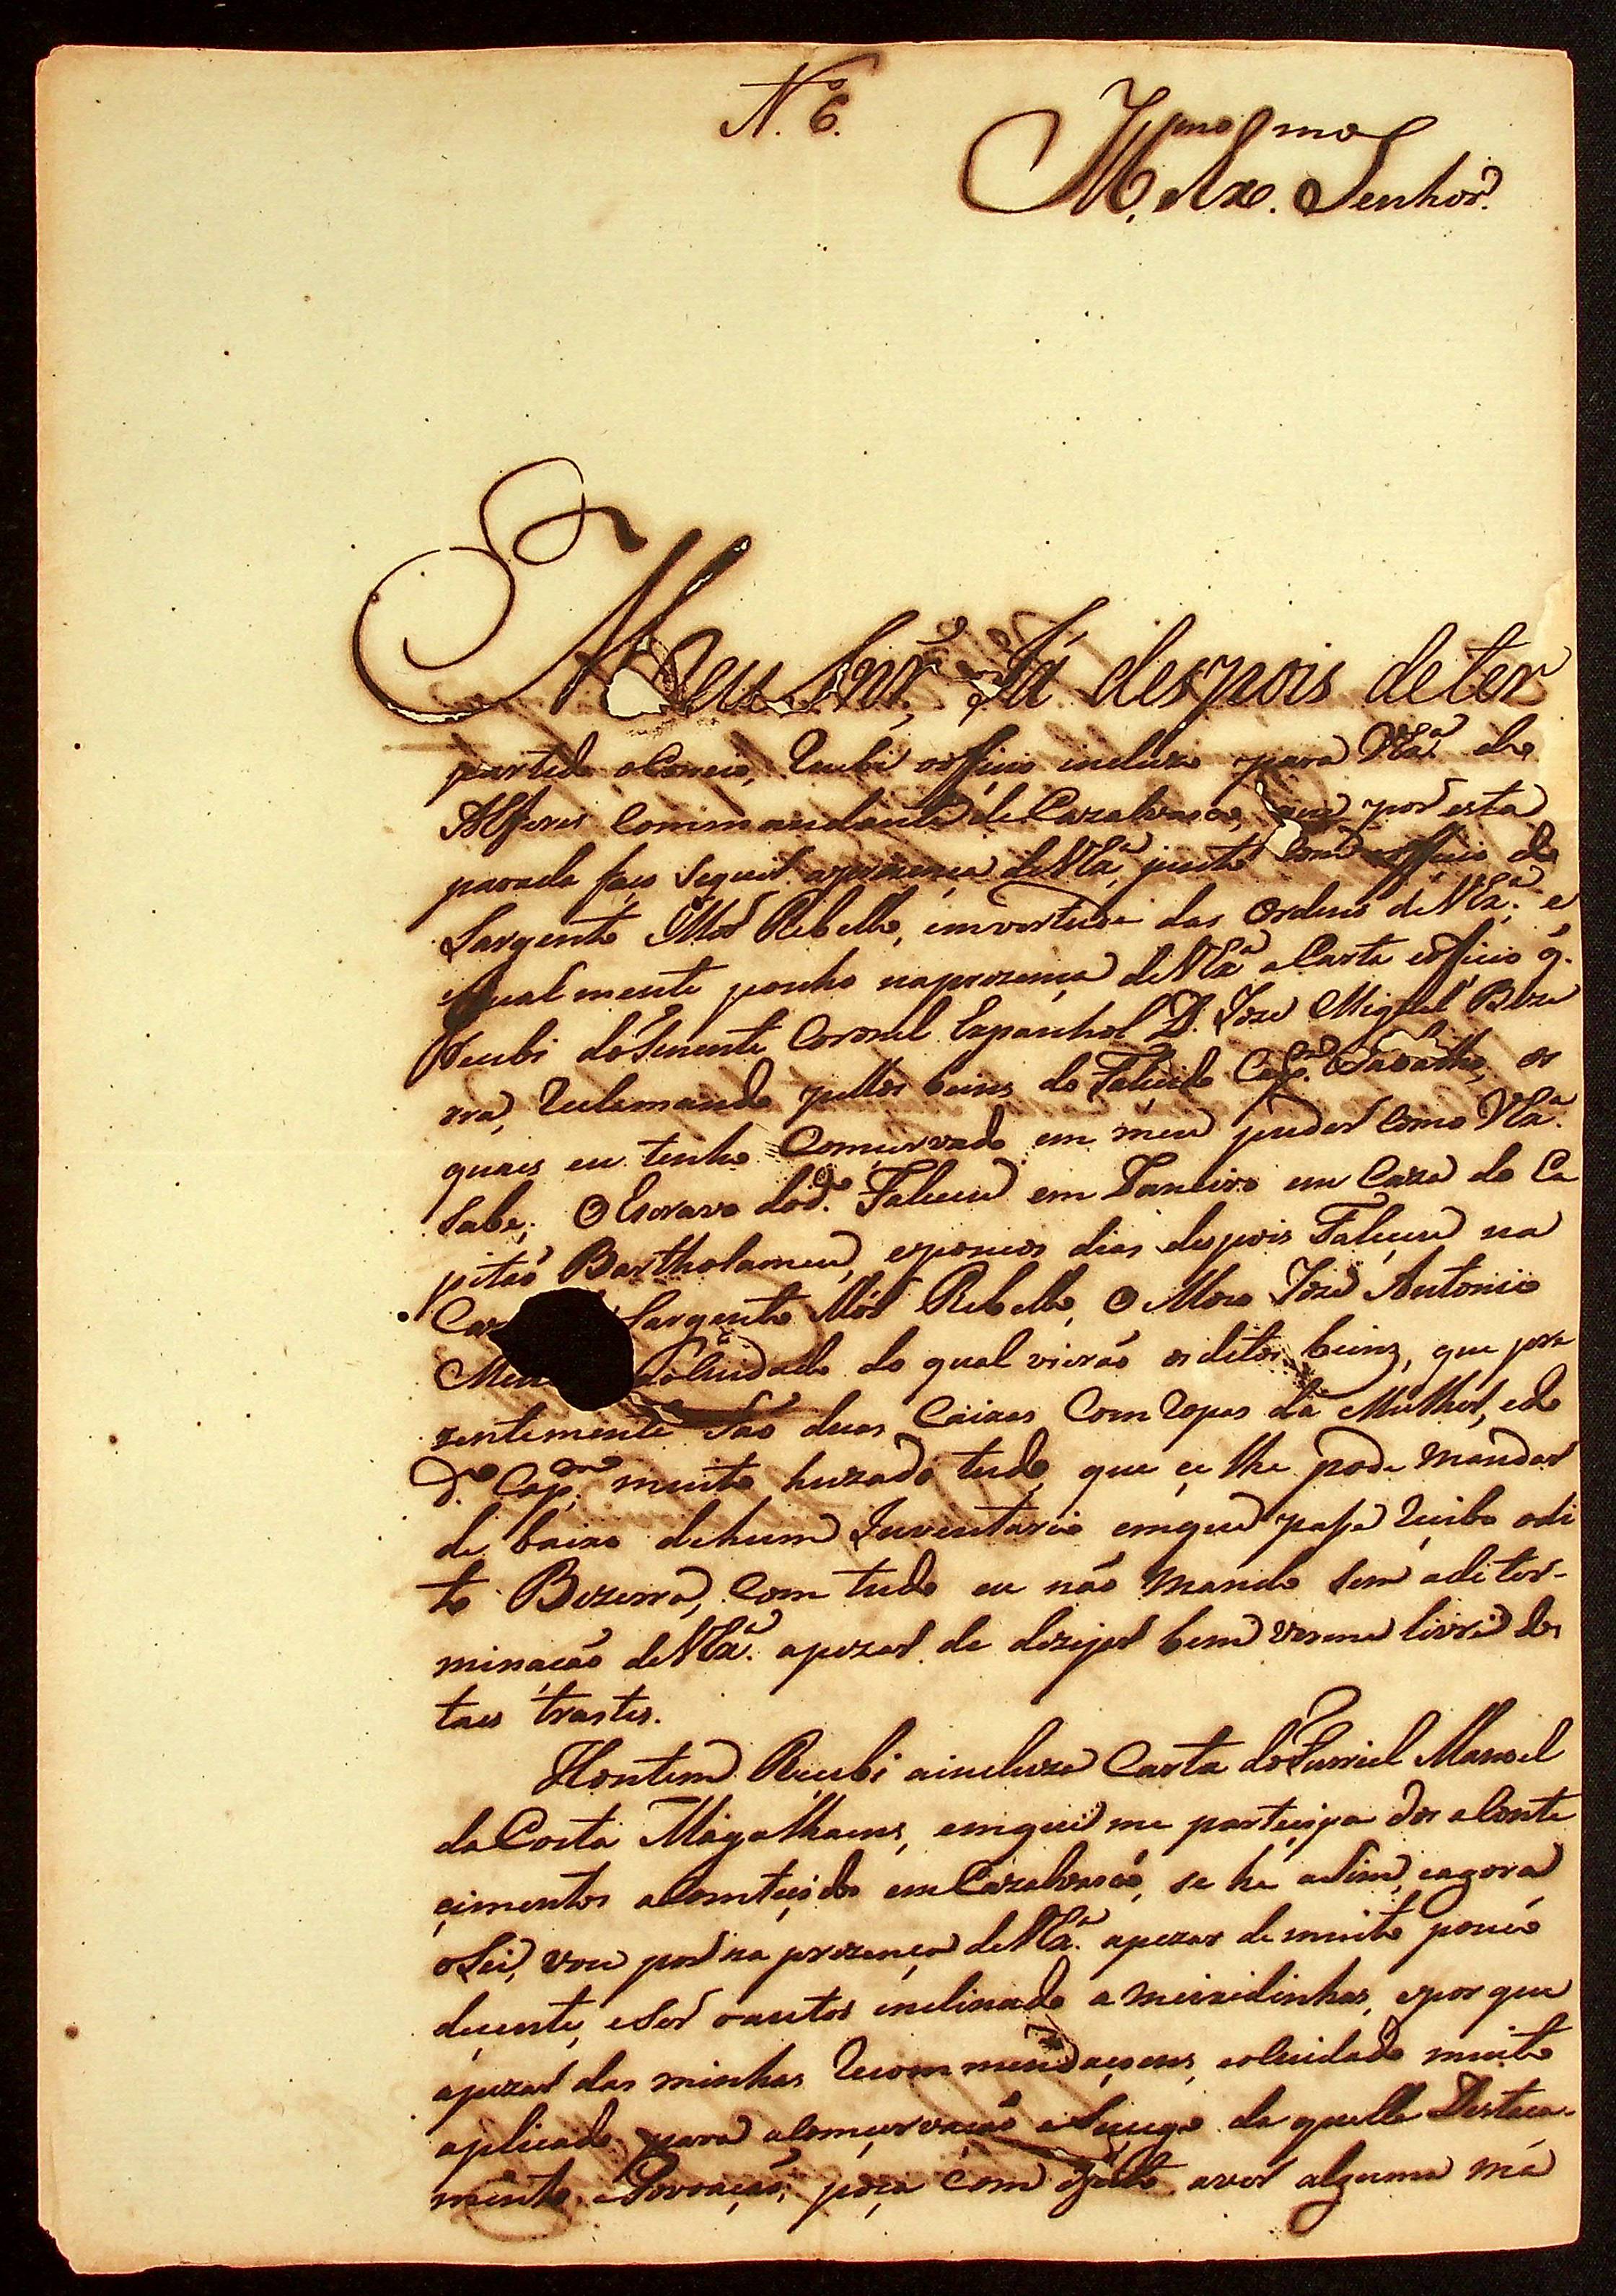 N. 6.
Illmo. e Exmo. Senhor.
Meu Snr. Já despois deter
partido oCorreio, Recebi oofficio incluzo para VExa. do
Alferes Commandante de Cazalvasco, que por esta
parada faço seguir aprezença deVExa. junto com oofficio do
Sargento Mór Rebello, emvertude das Ordens deVExa. e
igualmente ponho naprezença deVExa. aCarta eofficio q.
Recebi doTenente Coronel Espanhol D. Joze Miguel Beze
rra, Reclamando pellos beins do Falecido Capm. os
quaes eu tenho Comçervado em meu puder como VExa.
sabe; O Escravo dod.º Faleceu em Janeiro em Caza do Ca
pitaõ Bartholameu, epoucos dias despois Faleçeu na
Caz Sargento Mór Rebello, O Moço Joze Antonio
Men aoCuidado do qual vieraõ osditos beins, que pre
zentemente Saõ duas Caixas Com Ropas da Mulher, edo
d.º Capm. muito huzado tudo, que çe lhe pode mandar
de baixo dehum Inventario emque passe Reçibo odi
to Bezerra, Com tudo eu não mando sem adeter-
minaçaõ deVExa. apezar de dezejar bem verme livre dos
taes trastes.
Hontem Recebi aincluza Carta doFurriel Manoel
daCosta Magalhaens, emque me parteçipa dos aConte
çimentos aComteçidos em Cazalvasco, se he asim, eagora
oSei, vou por na prezença deVExa. apezar demuito pouco
deçente, eSer oautor inclinado a mixidinhos, eporque
apezar das minhas Recommendaçoens, eoCuidado muito
aplicado para aComçervaçaõ eSucego da quelle Destaca-
mento, ePovoaçaõ, poça com efeito aver alguma má